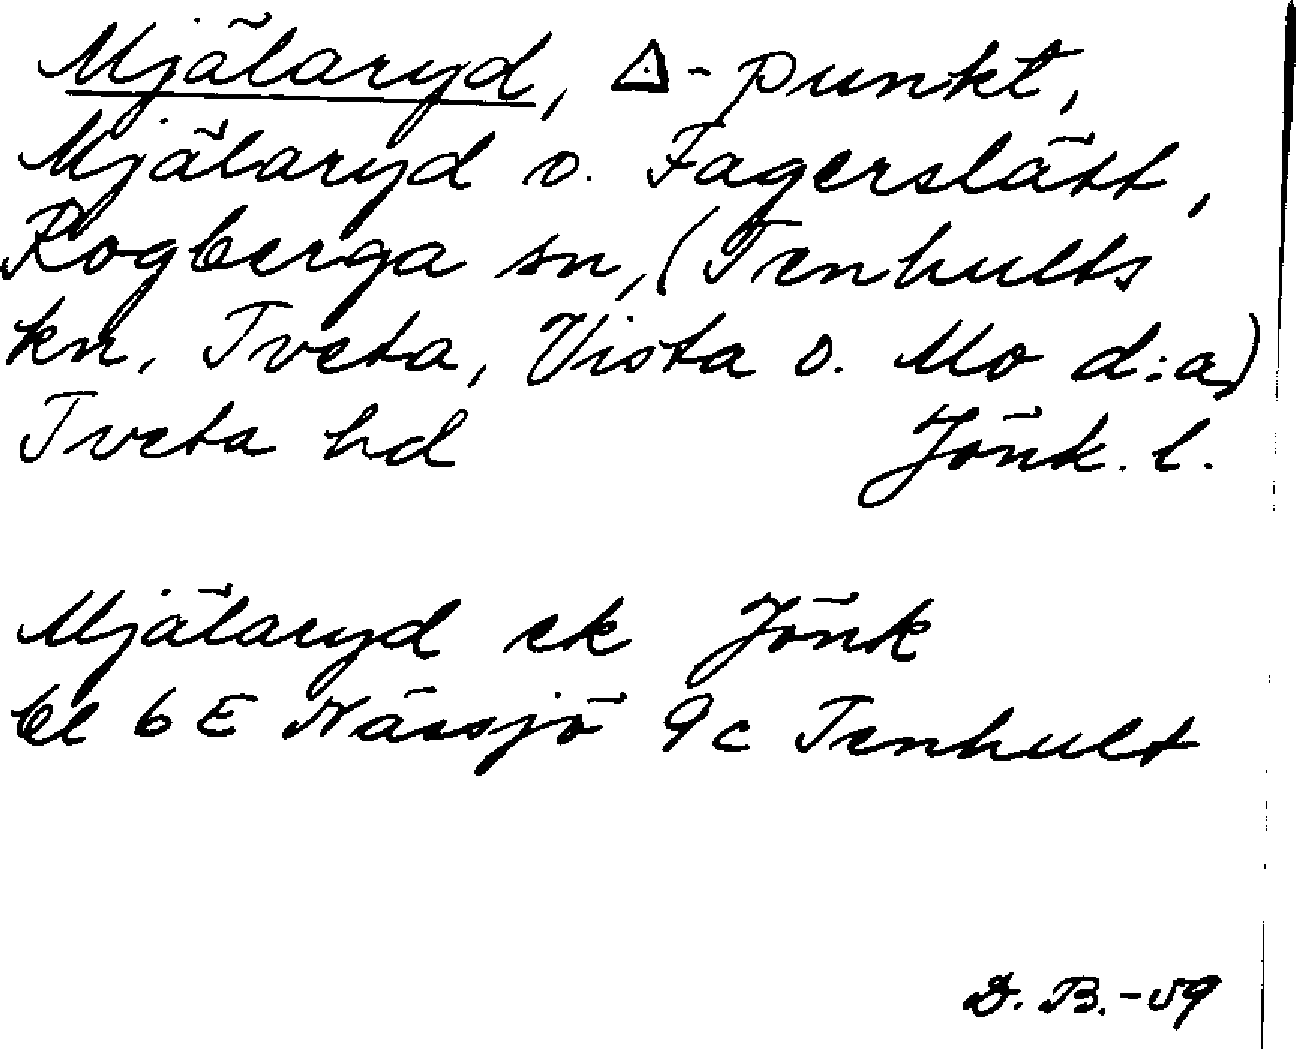 Mjälaryd, △-punkt,
Mjälaryd o. Fagerslätt,
Rogberga sn, (Tenhults
kn, Tveta, Vista o. Mo d:a)
Tveta hd Jönk. l.
Mjälaryd ek Jönk
bl 6 E Nässjö 9c Tenhult
D. B. -59